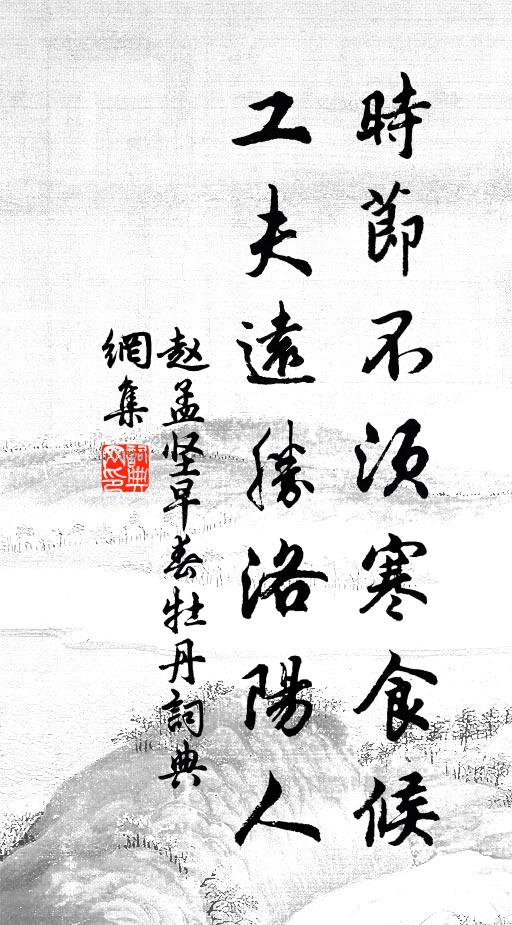 時節不須寒食候
工夫遠勝洛陽人
赵孟坚早春牡丹詞典
網集
詞典
网印